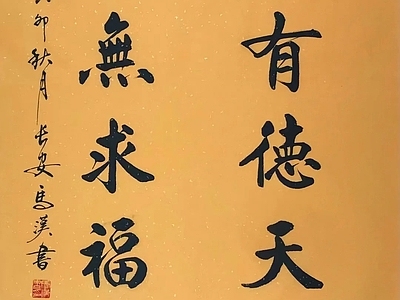 有德天
無求福
卯秋月长安馬漢書